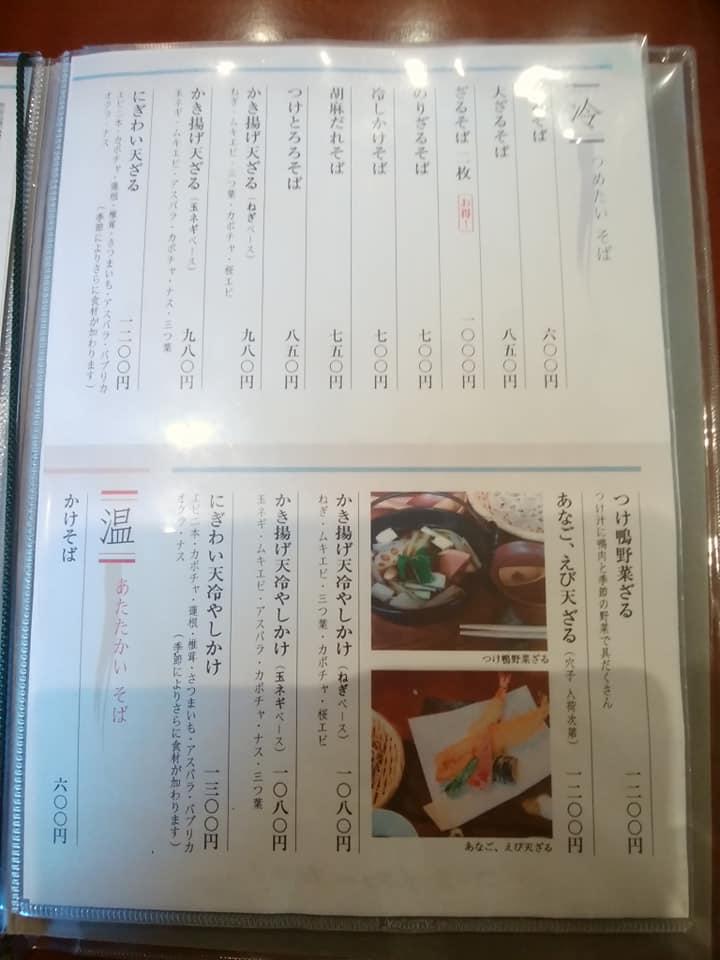 冷 つめたい そば
そば 六〇〇円
大ざるそば 八五〇円
ざるそば二枚 お得! 一〇〇〇円
のりざるそば 七〇〇円
冷しかけそば 七〇〇円
胡麻だれそば 七五〇円
つけとろろそば 八五〇円
かき揚げ天ざる(ねぎベース) 九八〇円
ねぎ・ムキエビ・三つ葉・カボチャ・桜エビ
かき揚げ天ざる(玉ネギベース) 九八〇円
玉ネギ・ムキエビ・アスパラ・カボチャ・ナス・三つ葉
にぎわい天ざる 一二〇〇円
エビ二本・カボチャ・蓮根・椎茸・さつまいも・アスパラ・パプリカ
オクラ・ナス (季節によりさらに食材が加わります)
つけ鴨野菜ざる 一二〇〇円
つけ汁に鴨肉と季節の野菜で具だくさん
あなご、えび天ざる(穴子 入荷次第) 一二〇〇円
つけ鴨野菜ざる
あなご、えび天ざる
かき揚げ天冷やしかけ(ねぎベース) 一〇八〇円
ねぎ・ムキエビ・三つ葉・カボチャ・桜エビ
かき揚げ天冷やしかけ(玉ネギベース) 一〇八〇円
玉ネギ・ムキエビ・アスパラ・カボチャ・ナス・三つ葉
にぎわい天冷やしかけ 一三〇〇円
エビ二本・カボチャ・蓮根・椎茸・さつまいも・アスパラ・パプリカ
オクラ・ナス (季節によりさらに食材が加わります)
温 あたたかい そば
かけそば 六〇〇円